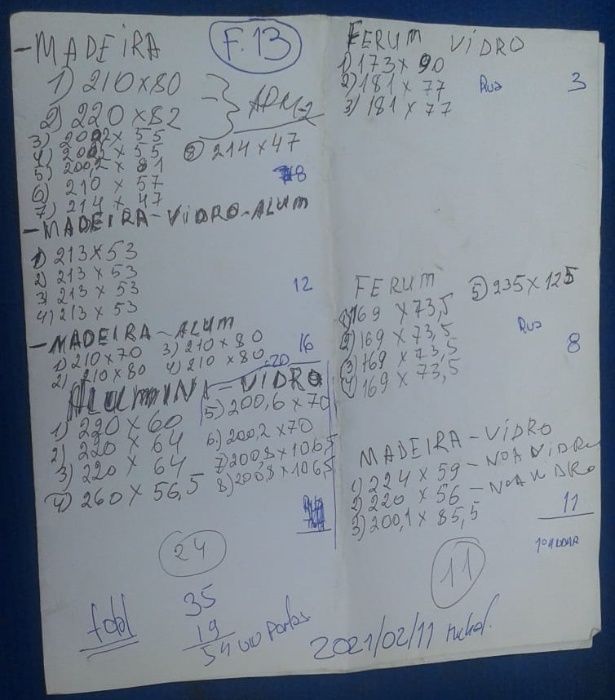 F.13
- MADEIRA
1) 210 x 80
2) 220 x 82
3) 2002 x 55
4) 2002 x 55
5) 200,2 x 81
6) 210 x 57
7) 214 x 47
8) 214 x 47
8
- MADEIRA - ViDRO - ALUM
1) 213 x 53
2) 213 x 53
3) 213 x 53
4) 213 x 53
12
- MADEIRA - ALUM
1) 210 x 70
2) 210 x 80
3) 210 x 80
4) 210 x 80
16
20
ALUMINI - ViDRO
1) 220 x 60
2) 220 x 64
3) 220 x 64
4) 260 x 56,5
5) 200,6 x 70
6) 200,2 x 70
7) 200,8 x 106,5
8) 200,8 x 106,5
24
total
35
19
54
FERUM ViDRO
1) 173 x 90
2) 181 x 77
3) 181 x 77
Rua
3
FERUM
1) 169 x 73,5
2) 169 x 73,5
3) 169 x 73,5
4) 169 x 73,5
5) 235 x 125
Rua
8
MADEIRA - ViDRO
1) 224 x 59 - NOA ViDRO
2) 220 x 56 - NOA ViDRO
3) 200,1 x 85,5
11
11
2021/02/11